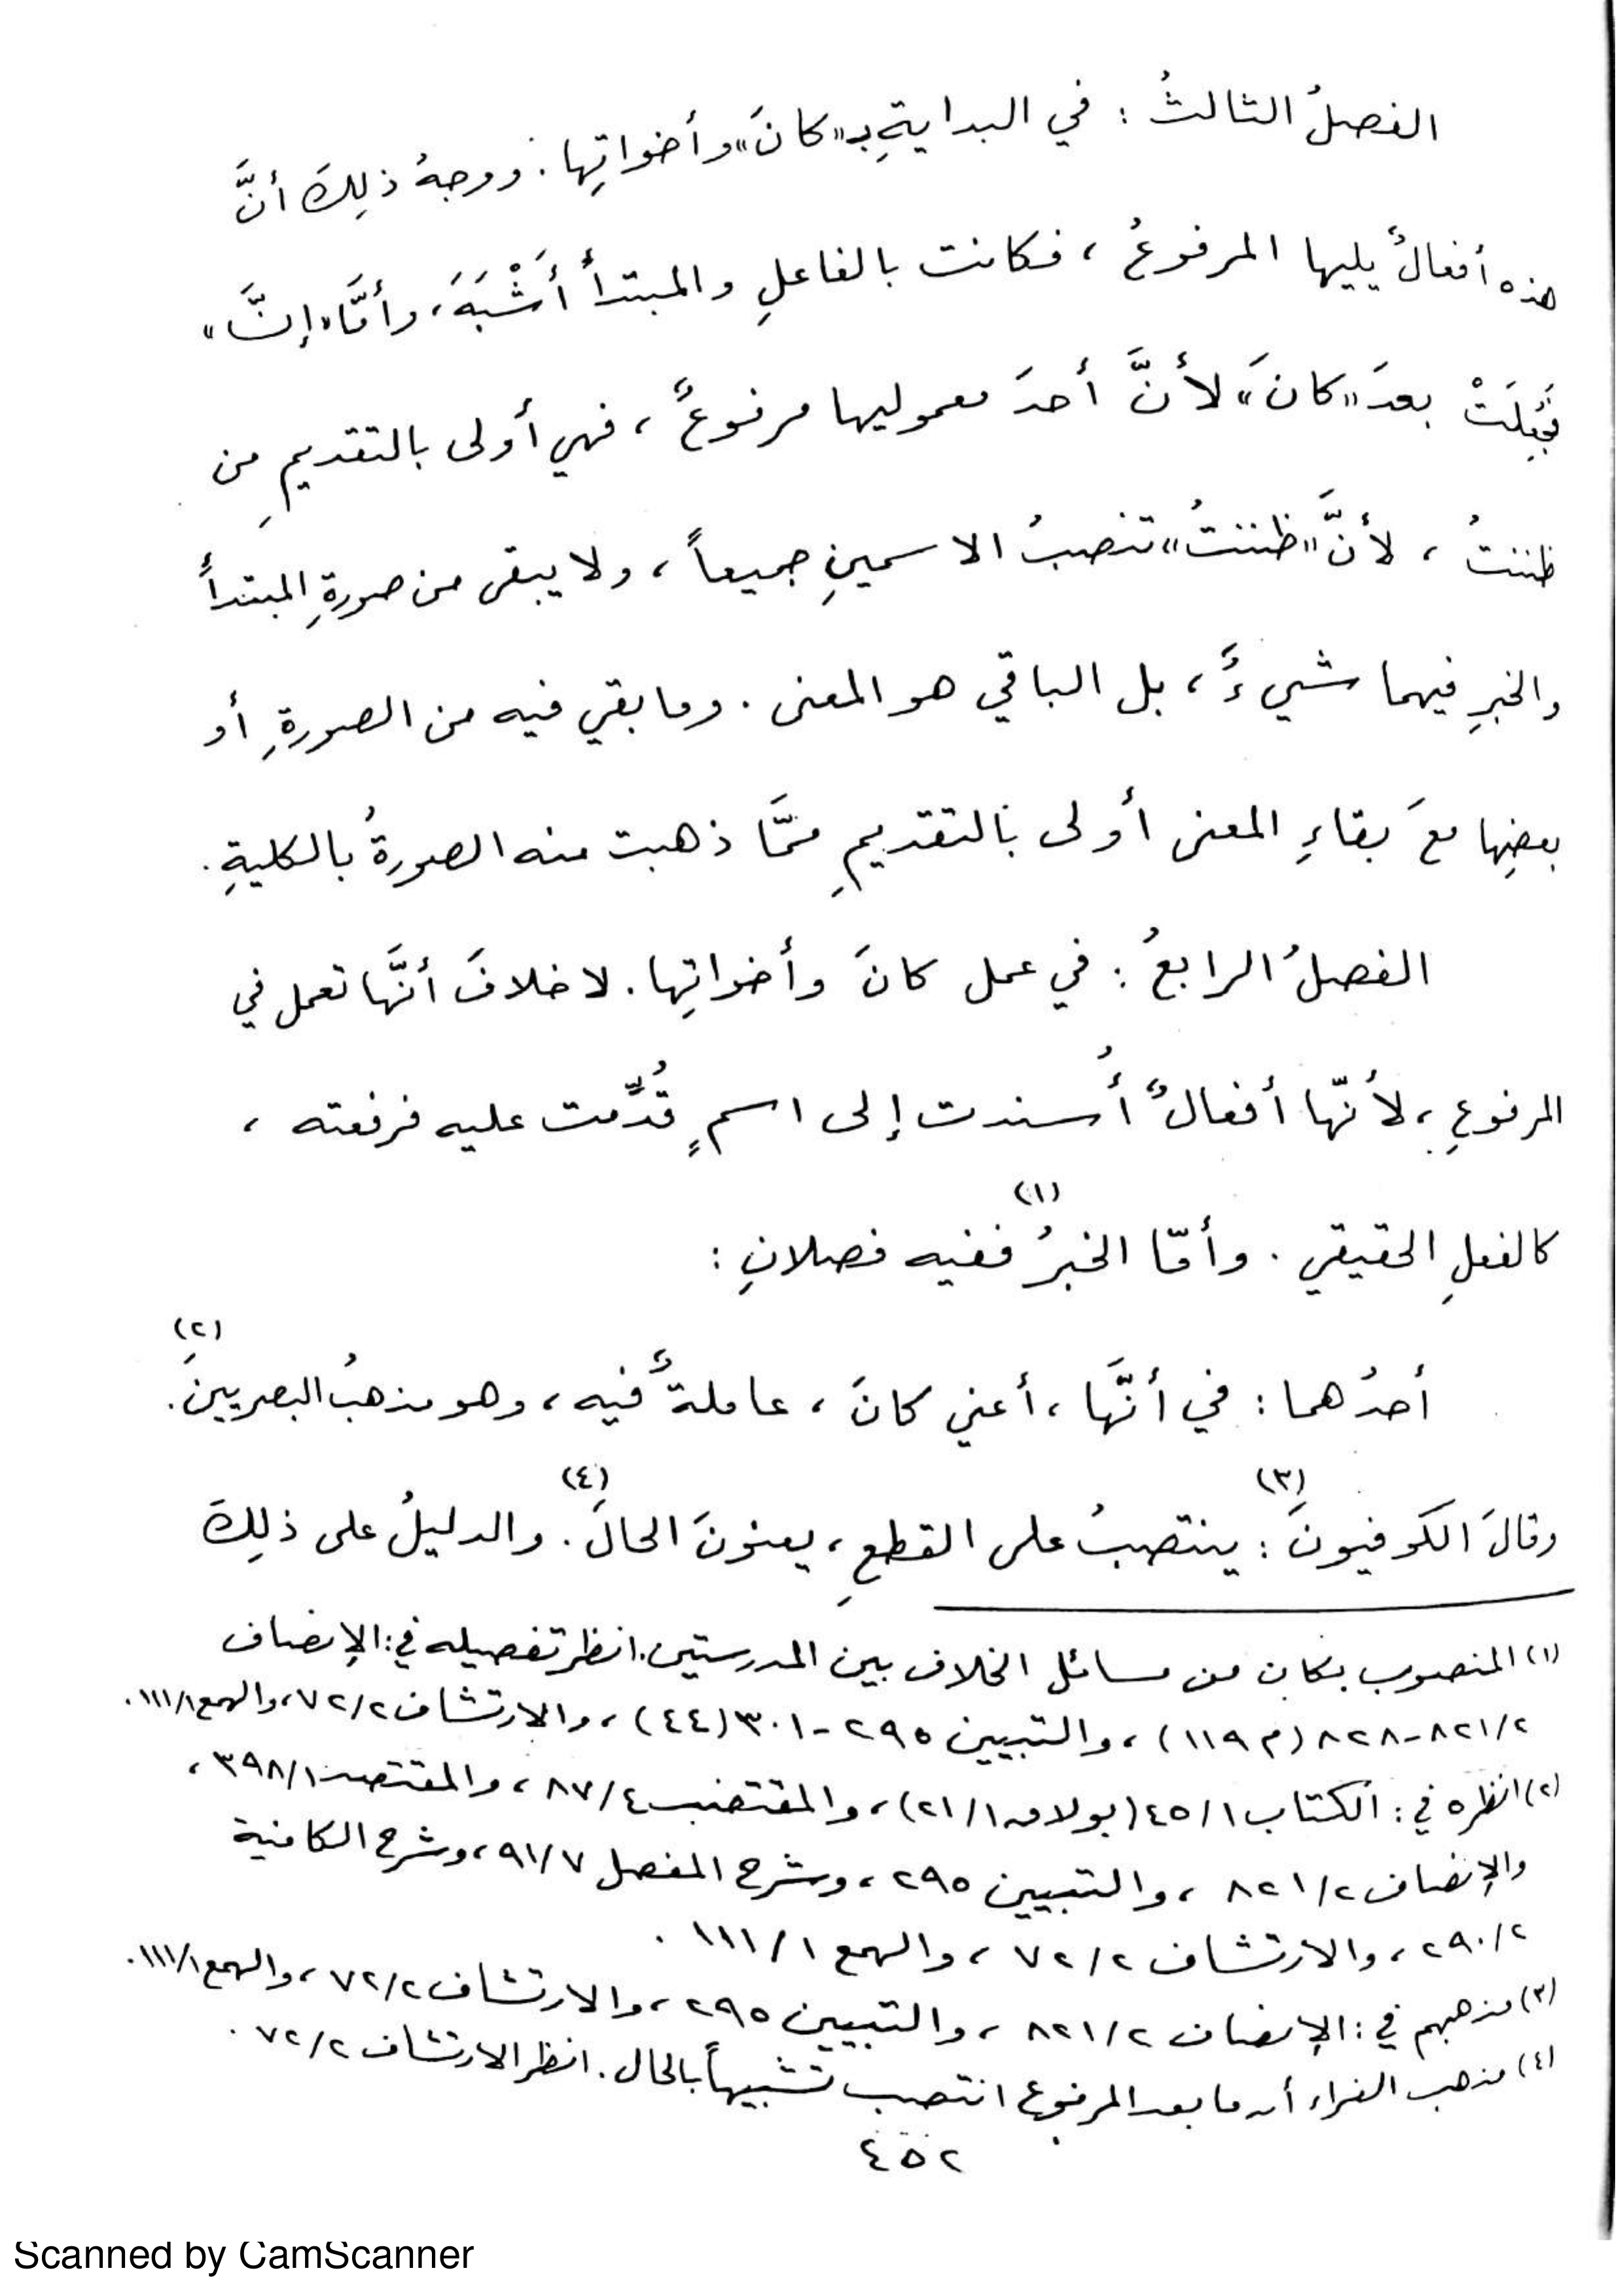 الفصلُ الثالثُ : في البدايةِ بـ«كانَ» وأخواتِها . ووجهُ ذلِكَ أنَّ
هذه أفعالٌ يليها المرفوعُ ، فكانت بالفاعلِ والمبتدأ أَشْبَهَ ، وأمَّا «إنَّ»
فجُعِلَتْ بعدَ «كانَ» لأنَّ أحدَ معموليها مرفوعٌ ، فهي أولى بالتقديمِ من
ظننتُ ، لأنَّ «ظننتُ» تنصبُ الاسمينِ جميعاً ، ولا يبقى من صورةِ المبتدأ
والخبرِ فيهما شيءٌ ، بل الباقي هو المعنى . وما بقي فيه من الصورةِ أو
بعضِها معَ بقاءِ المعنى أولى بالتقديمِ ممَّا ذهبت منه الصورةُ بالكليةِ .
الفصلُ الرابعُ : في عمل كانَ وأخواتِها . لا خلافَ أنَّها تعمل في
المرفوعِ ، لأنّها أفعالٌ أُسندت إلى اسمٍ قُدِّمت عليه فرفعته ،
كالفعلِ الحقيقي . وأمّا الخبرُ (١) ففيه فصلانِ :
أحدُهما : في أنَّها ، أعني كانَ ، عاملةٌ فيه ، وهو مذهبُ البصريينَ (٢) .
وقالَ الكوفيونَ (٣) : ينتصبُ على القطعِ ، يعنونَ الحالَ (٤) . والدليلُ على ذلِكَ
(١) المنصوب بكان من مسائل الخلاف بين المدرستين . انظر تفصيله في : الإنصاف
٨٢١/٢-٨٢٨ (م ١١٩) ، والتبيين ٢٩٥-٣٠١ (٤٤) ، والارتشاف ٧٢/٢ ، والهمع ١١١/١ .
(٢) انظره في : الكتاب ٤٥/١ (بولاق ٢١/١) ، والمقتضب ٨٧/٤ ، والمقتصد ٣٩٨/١ ،
والإنصاف ٨٢١/٢ ، والتبيين ٢٩٥ ، وشرح المفصل ٩١/٧ ، وشرح الكافية
٢٩٠/٢ ، والارتشاف ٧٢/٢ ، والهمع ١١١/١ .
(٣) مذهبهم في : الإنصاف ٨٢١/٢ ، والتبيين ٢٩٥ ، والارتشاف ٧٢/٢ ، والهمع ١١١/١ .
(٤) مذهب الفراء أن ما بعد المرفوع انتصب تشبيهاً بالحال . انظر الارتشاف ٧٢/٢ .
٤٥٢
Scanned by CamScanner